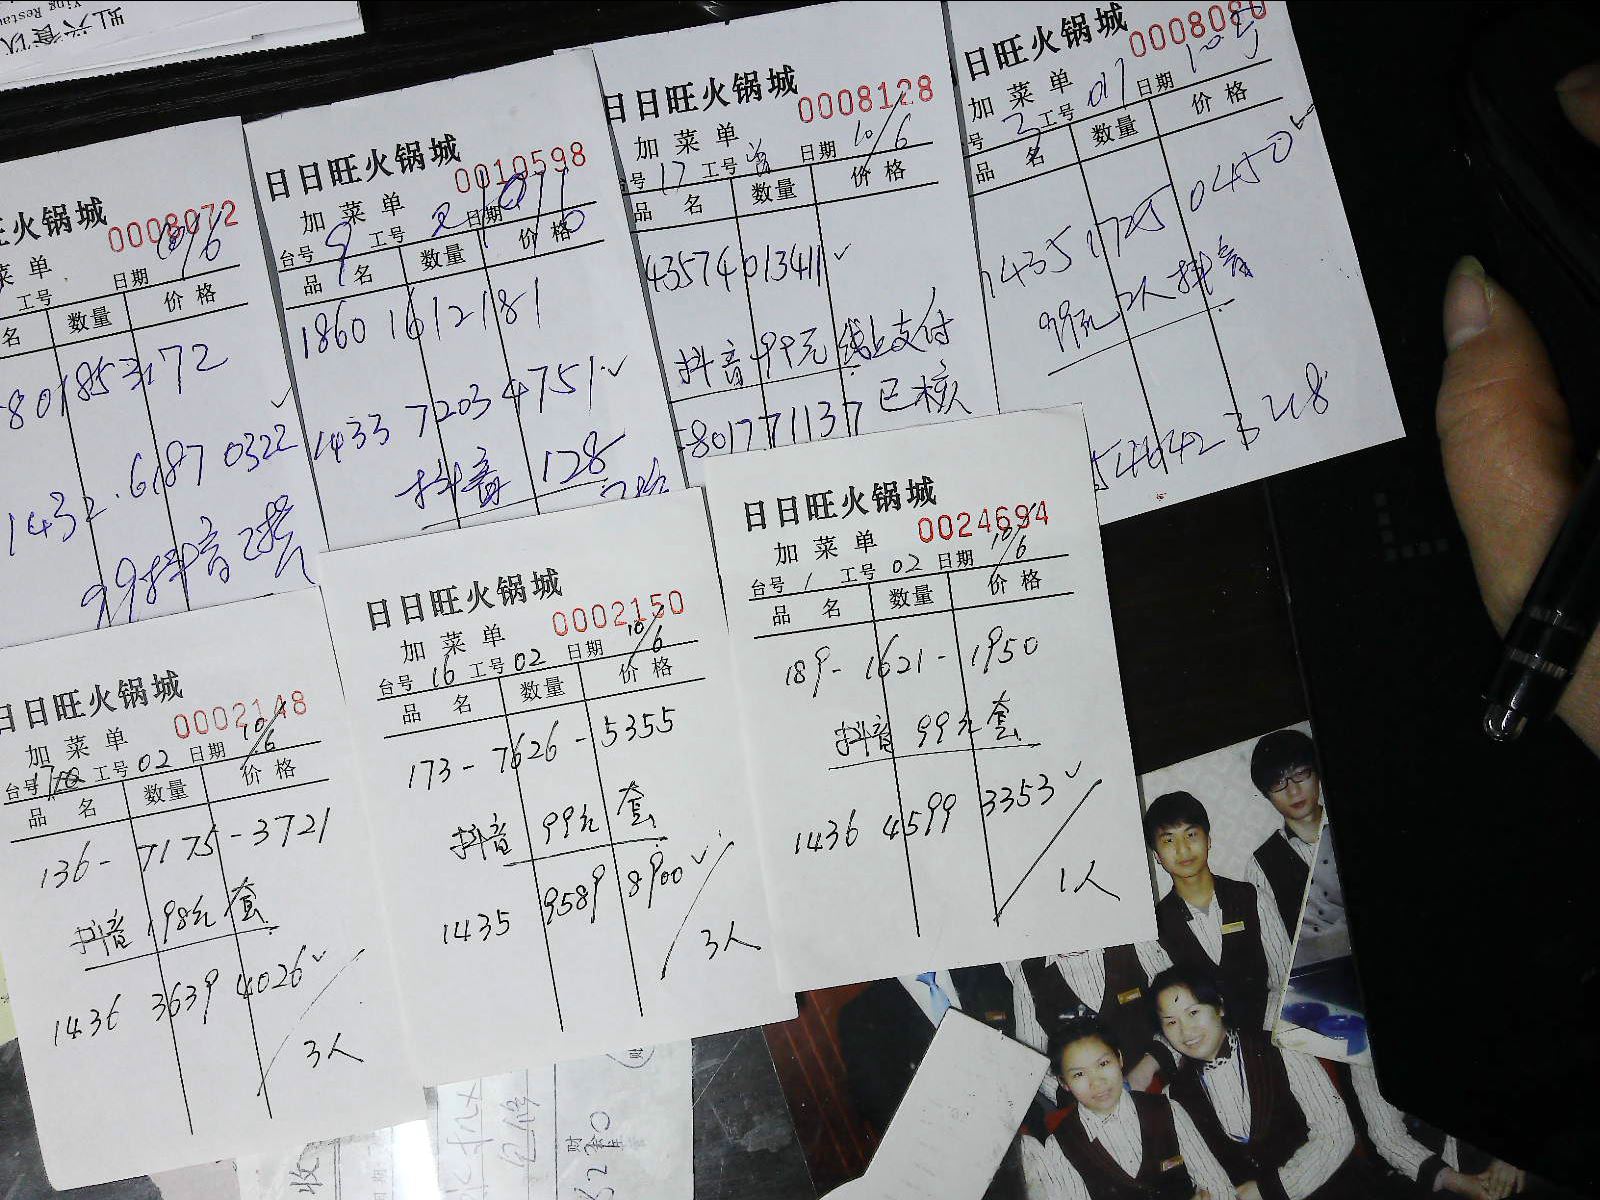 旺火锅城
0008072
菜单
工号 日期 10/6
名 数量 价格
801853172
1432 6187 0322
99抖音2
日日旺火锅城
0010598
加菜单
台号 9 工号 日期
品名 数量 价格
18601612181
1433 7203 4751
抖音 128
日日旺火锅城
0008128
加菜单
号 17 工号 日期 10/6
品名 数量 价格
43574013411
抖音 99元 线上支付
已核
5801771137
日日旺火锅城
加菜单
号 3 工号 017 日期 10号
品名 数量 价格
1435 1725 0450
99元 2人 抖音
54642 3 218
日日旺火锅城
0002148
加菜单
台号 工号 02 日期 10/6
品名 数量 价格
136-7175-3721
抖音 198元 套
1436 3639 4026
3人
日日旺火锅城
0002150
加菜单
台号 16 工号 02 日期 10/6
品名 数量 价格
173-7626-5355
抖音 99元 套
1435 9589 8900
3人
日日旺火锅城
0024694
加菜单
台号 1 工号 02 日期 10/6
品名 数量 价格
189-1621-1950
抖音 99元 套
1436 4599 3353
1人